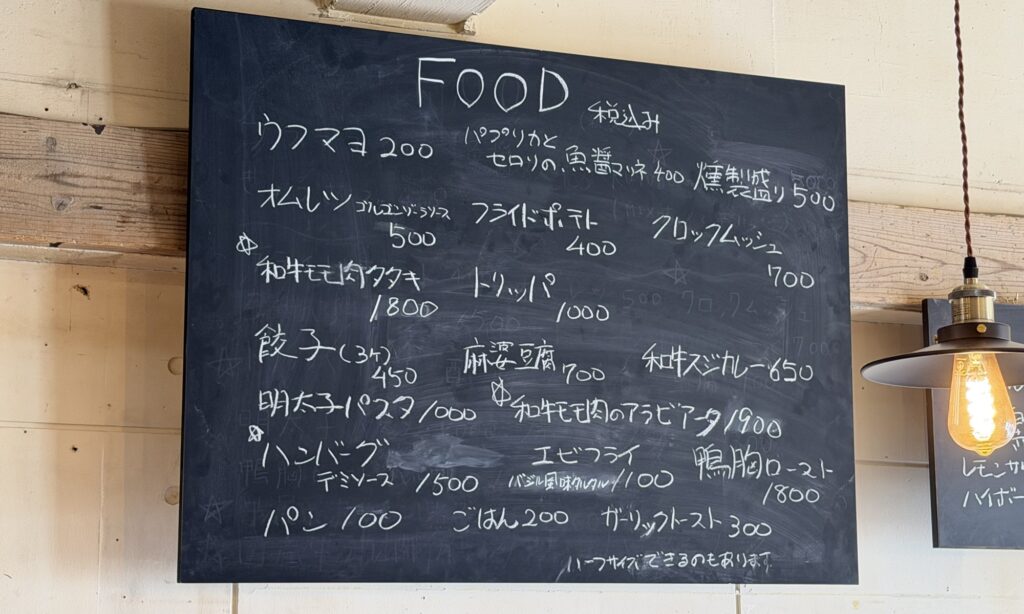 FOOD
税込み
ウフマヨ 200
パプリカと
セロリの魚醤マリネ 400
燻製盛り 500
オムレツ ゴルゴンゾーラソース
500
フライドポテト
400
クロックムッシュ
700
☆
和牛モモ肉タタキ
1800
トリッパ
1000
餃子(3ケ)
450
麻婆豆腐 700
和牛スジカレー 650
明太子パスタ 1000
☆
和牛モモ肉のアラビアータ 1900
☆
ハンバーグ
デミソース 1500
エビフライ
バジル風味タルタル 1100
鴨胸ロースト
1800
パン 100
ごはん 200
ガーリックトースト 300
ハーフサイズできるのもあります
レモンサ
ハイボー